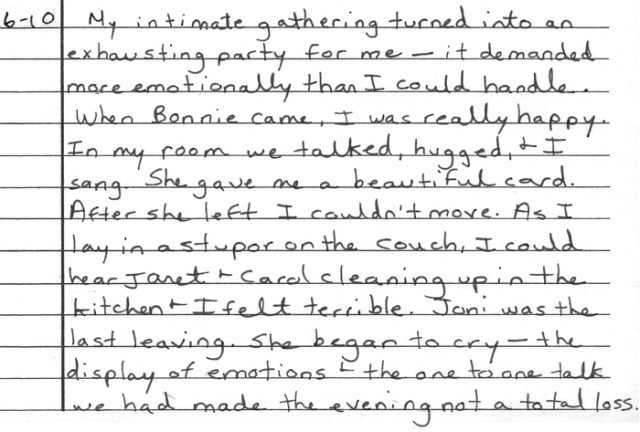 6-10 My intimate gathering turned into an
exhausting party for me – it demanded
more emotionally than I could handle.
When Bonnie came, I was really happy.
In my room we talked, hugged, + I
sang. She gave me a beautiful card.
After she left I couldn't move. As I
lay in a stupor on the couch, I could
hear Janet + Carol cleaning up in the
kitchen + I felt terrible. Joni was the
last leaving. She began to cry – the
display of emotions + the one to one talk
we had made the evening not a total loss.